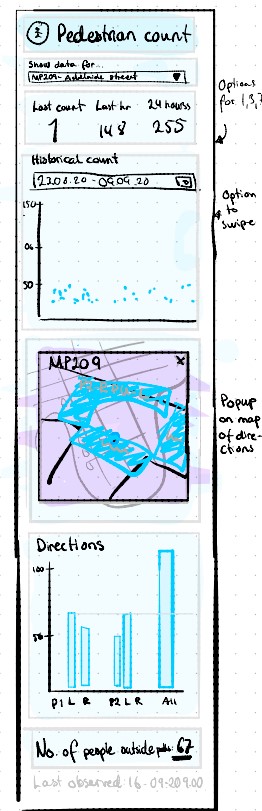 Pedestrian count
Show data for...
MP209- Adelaide street
Last count Last hr 24 hours
1 148 255
Options
for 1,3,7
Historical count
22.08.20 - 09.09.20
Option
to
swipe
150
50
MP209 x
Popup
on map
of dire-
ctions
Directions
100
50
P1 L R P2 L R All
No. of people outside 67
Last observed 16-09-20 9.00